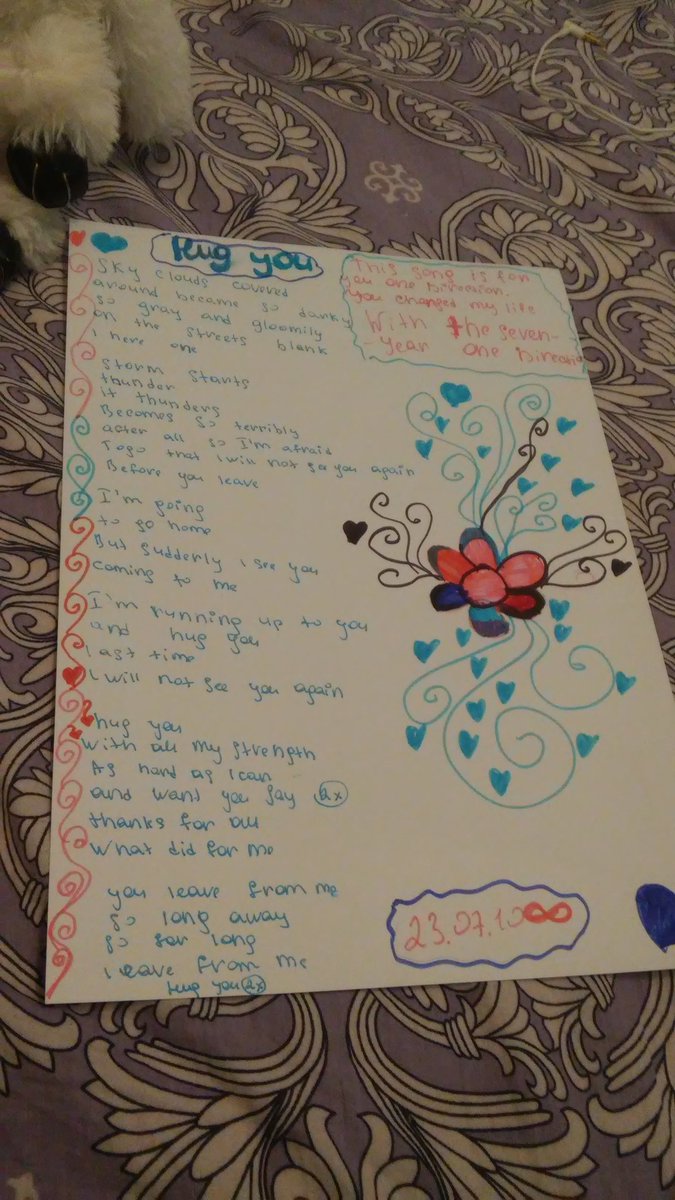 Hug you
This song is for
you One Direction.
You changed my life
With the seven-
-year One Direction
Sky clouds covered
around became so darky
so gray and gloomily
on the streets blank
I here one
Storm starts
thunder
it thunders
Becomes so terribly
acter all so I'm afraid
Togo that I will not see you again
Before you leave
I'm going
to go home
But sudderly I see you
coming to me
I'm running up to you
and hug you
Last time
I will not see you again
hug you
With all my strength
As hard as I can
and want you say 2x
thanks for all
What did for me
you leave from me
so long away
so far long
leave from me
Hug you 2x
23.07.10∞